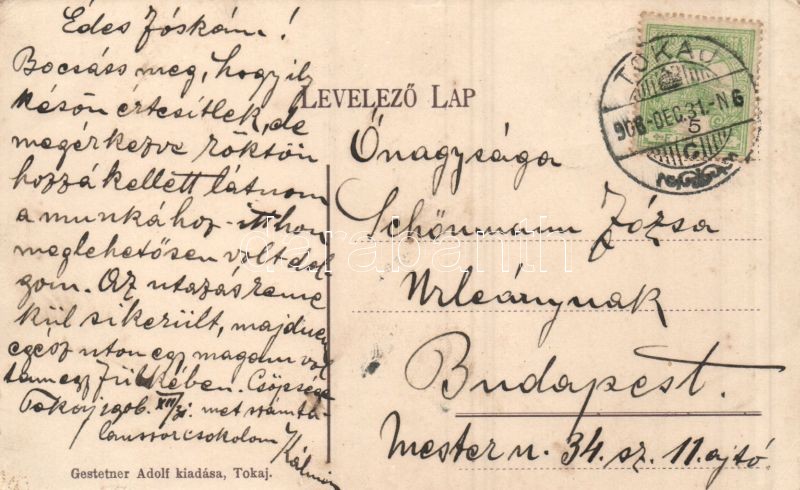 Édes Jóskám!
Bocsáss meg, hogy ily
későn értesítlek, de
megérkezve rögtön
hozzá kellett látnom
a munkához - itthon
meglehetősen volt dol-
gom. Az utazás reme
kül sikerült, majdnem
egész uton egy magam vol
tam egy fülkében.
Tokaj 906. XII/31.
Kálmán
LEVELEZŐ LAP
TOKAJ
906-DEC.31.-N6
5
C
Őnagysága
Schönmann Józsa
Urleánynak
Budapest.
Mester u. 34. sz. 11. ajtó
Gestetner Adolf kiadása, Tokaj.
Darabanth